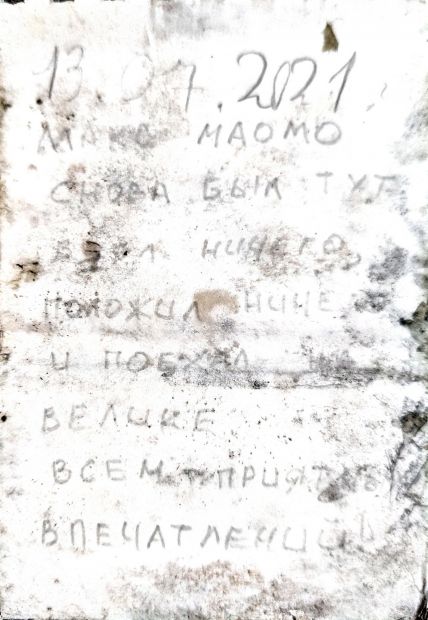 13.07.2021
МАКС МАОМО
СНОВА БЫЛ ТУТ
ВЗЯЛ НИЧЕГО,
ПОЛОЖИЛ НИЧЕГО
И ПОЕХАЛ НА
ВЕЛИКЕ.
ВСЕМ ПРИЯТНЫХ
ВПЕЧАТЛЕНИЙ